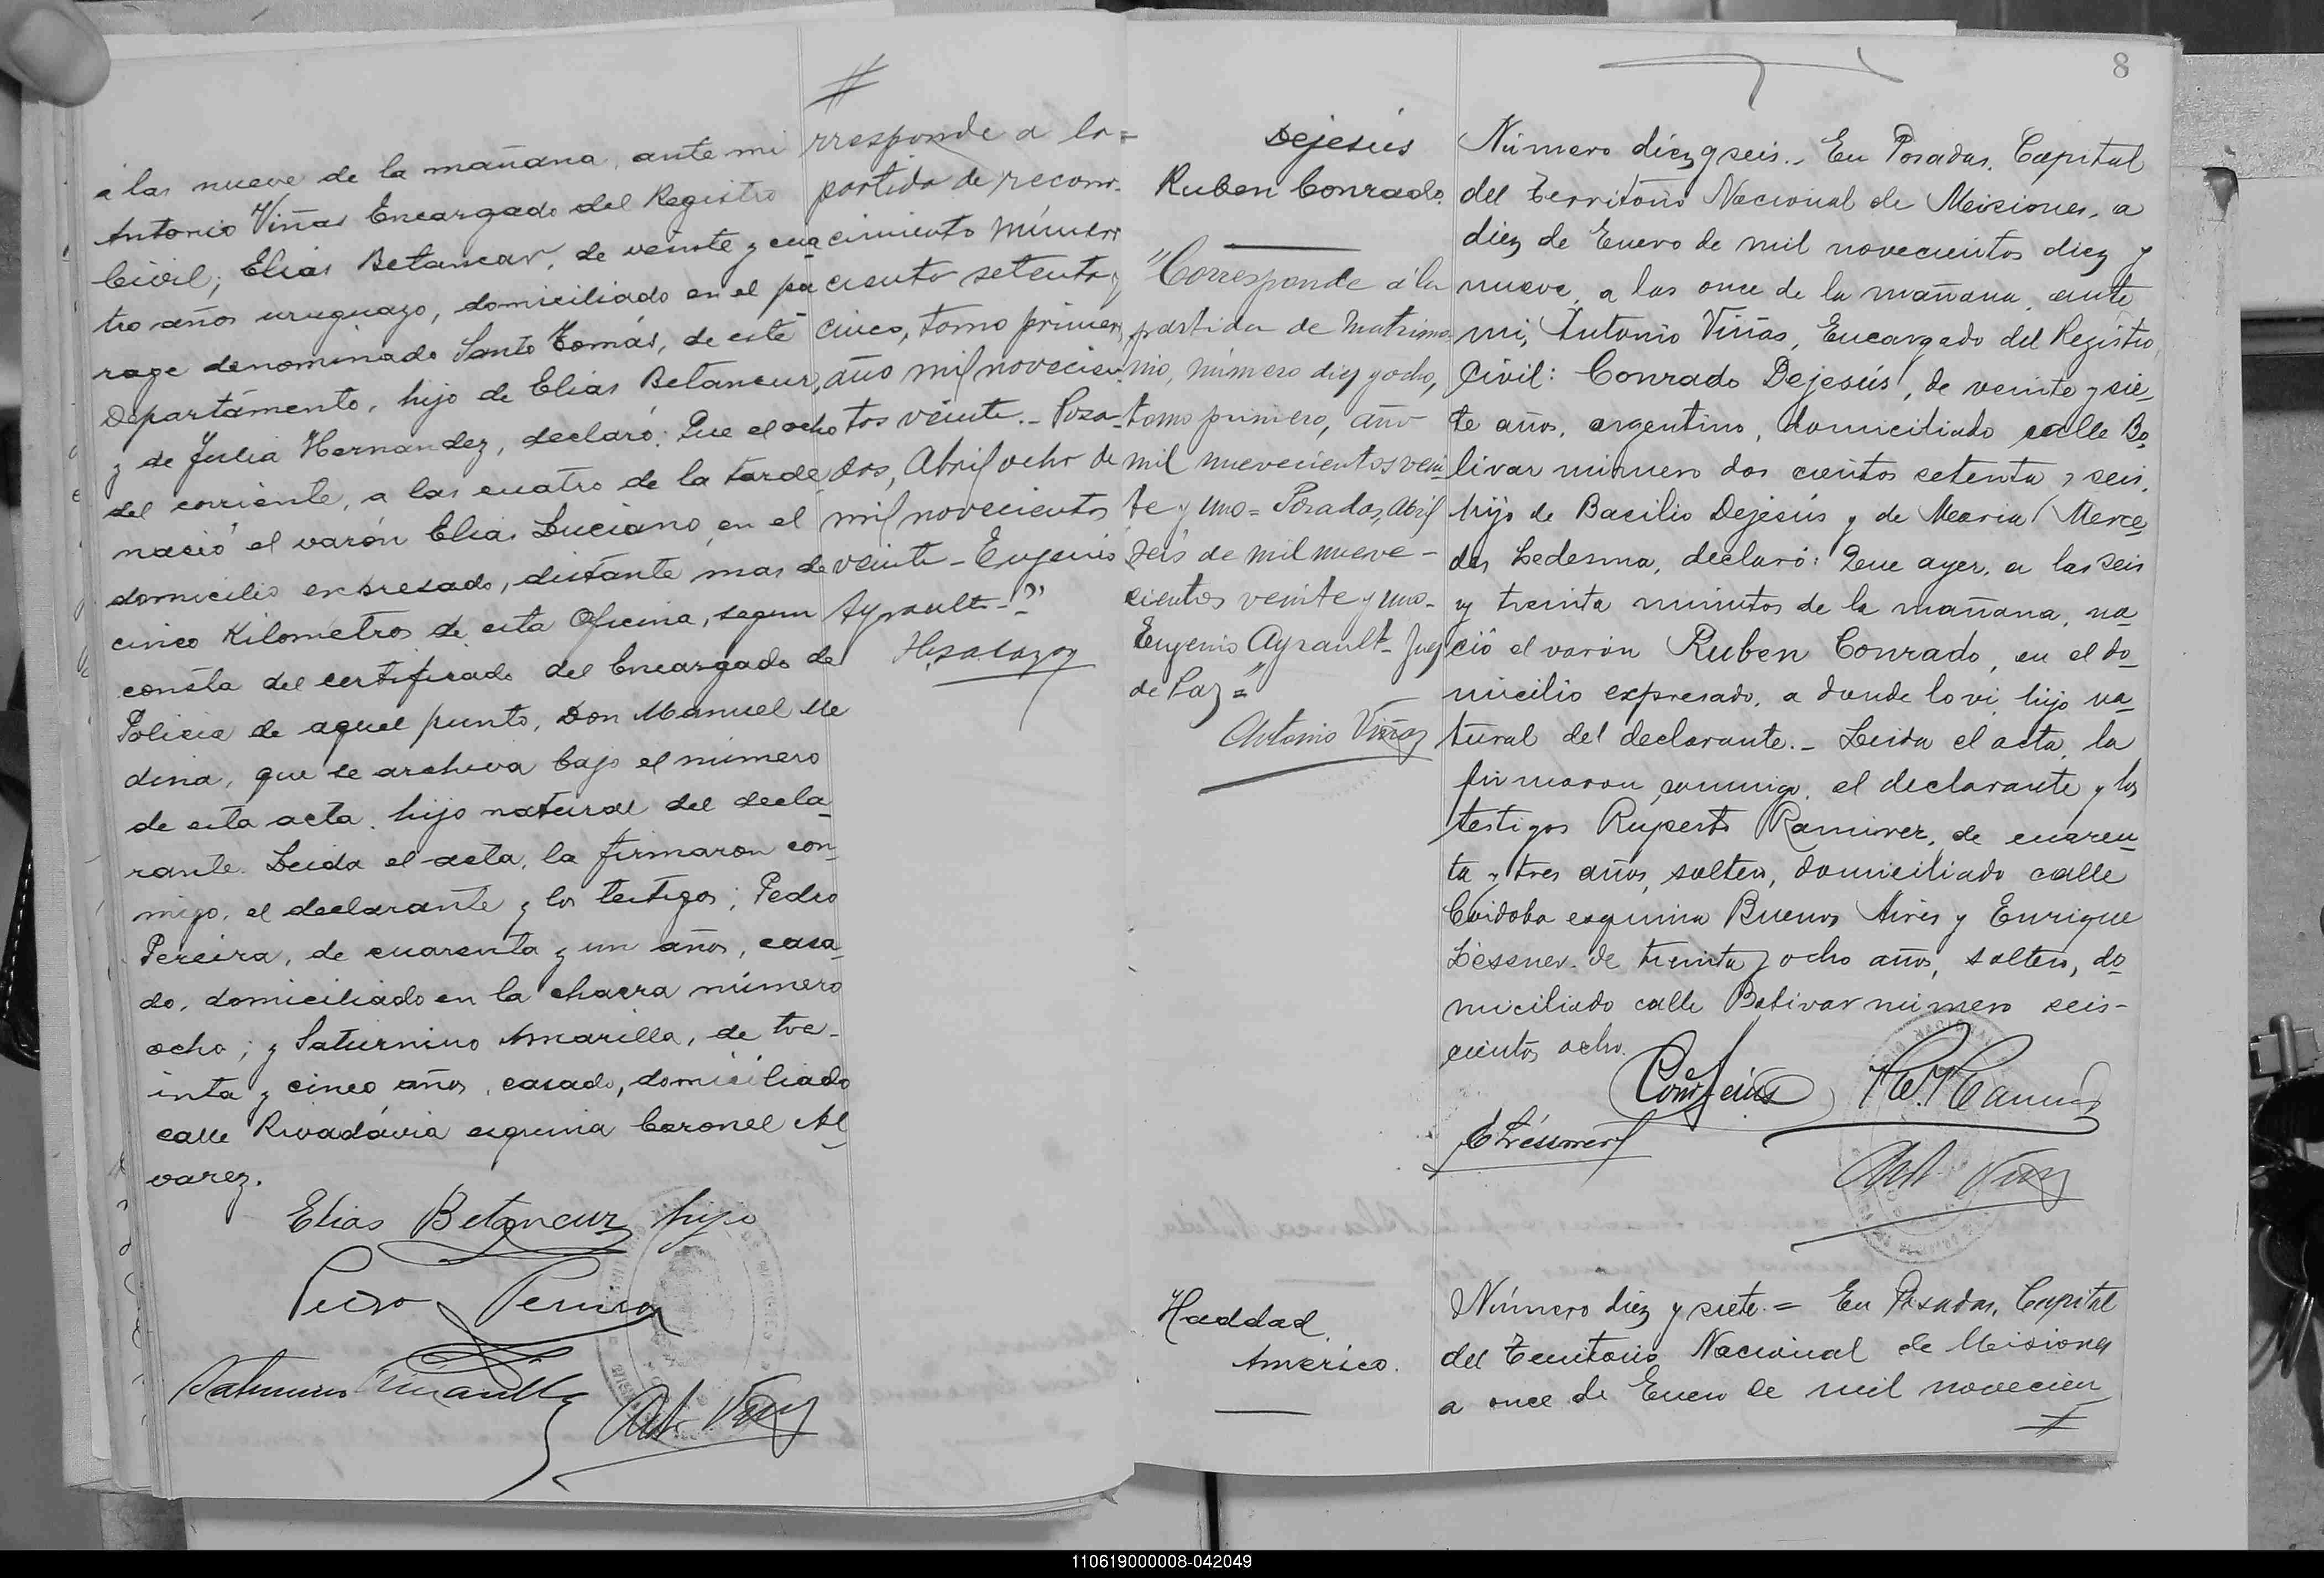 á las nueve de la mañana, ante mi
Antonio Viñas Encargado del Registro
Civil; Elias Betancur, de veinte y cua
tro años uruguayo, domiciliado en el pa
rage denominado Santo Tomás, de este
Departamento, hijo de Elias Betancur,
y de Julia Hernandez, declaró: Que el ocho
del corriente, a las cuatro de la tarde
nació el varón Elias Luciano, en el
domicilio expresado, distante mas de
cinco Kilometros de esta Oficina, segun
consta del certificado del Encargado de
Policia de aquel punto, Don Manuel Me
dina, que se archiva bajo el número
de esta acta, hijo natural del decla-
rante. Leida el acta, la firmaron con-
migo, el declarante y los testigos; Pedro
Pereira, de cuarenta y un años, casa-
do, domiciliado en la chacra número
ocho; y Saturnino Amarilla, de tre-
inta y cinco años, casado, domiciliado
calle Rivadavia esquina Coronel Al
varez.
Elias Betancur hijo
Pedro Pereira
Saturnino Amarilla
Ant. Viñas
#
rresponde a la=
partida de recono-
cimiento número
ciento setenta y
cinco, tomo primero,
año mil novecien-
tos veinte.- Posa-
das, Abril ocho de
mil novecientos
veinte - Eugenio
Ayrault-"
H. Salazar
8
Dejesús
Ruben Conrado.
"Corresponde á la
partida de matrimo-
nio, número diez y ocho,
tomo primero, año
mil nuevecientos vein-
te y uno= Posadas, Abril
seis de mil nueve-
cientos veinte y uno-
Eugenio Ayrault- Juez
de Paz="
Antonio Viñas
Número diez y seis.- En Posadas, Capital
del Territorio Nacional de Misiones, a
diez de Enero de mil novecientos diez y
nueve, a las once de la mañana, ante
mi, Antonio Viñas, Encargado del Registro
Civil: Conrado Dejesús, de veinte y sie-
te años, argentino, domiciliado calle Bo-
livar número dos cientos setenta y seis,
hijo de Basilio Dejesús y de Maria Merce-
des Ledesma, declaró: Que ayer, a las seis
y treinta minutos de la mañana, na-
ció el varón Ruben Conrado, en el do-
micilio expresado, a donde lo vi, hijo na-
tural del declarante.- Leida el acta, la
firmaron conmigo, el declarante y los
testigos Ruperto Ramirez, de cuaren-
ta y tres años, soltero, domiciliado calle
Córdoba esquina Buenos Aires y Enrique
Léssner, de treinta y ocho años, soltero, do-
miciliado calle Bolivar número seis-
cientos ocho.
E Léssner
Ant. Viñas
Haddad
Américo.
Número diez y siete.= En Posadas, Capital
del Territorio Nacional de Misiones
a once de Enero de mil novecien
#
110619000008-042049